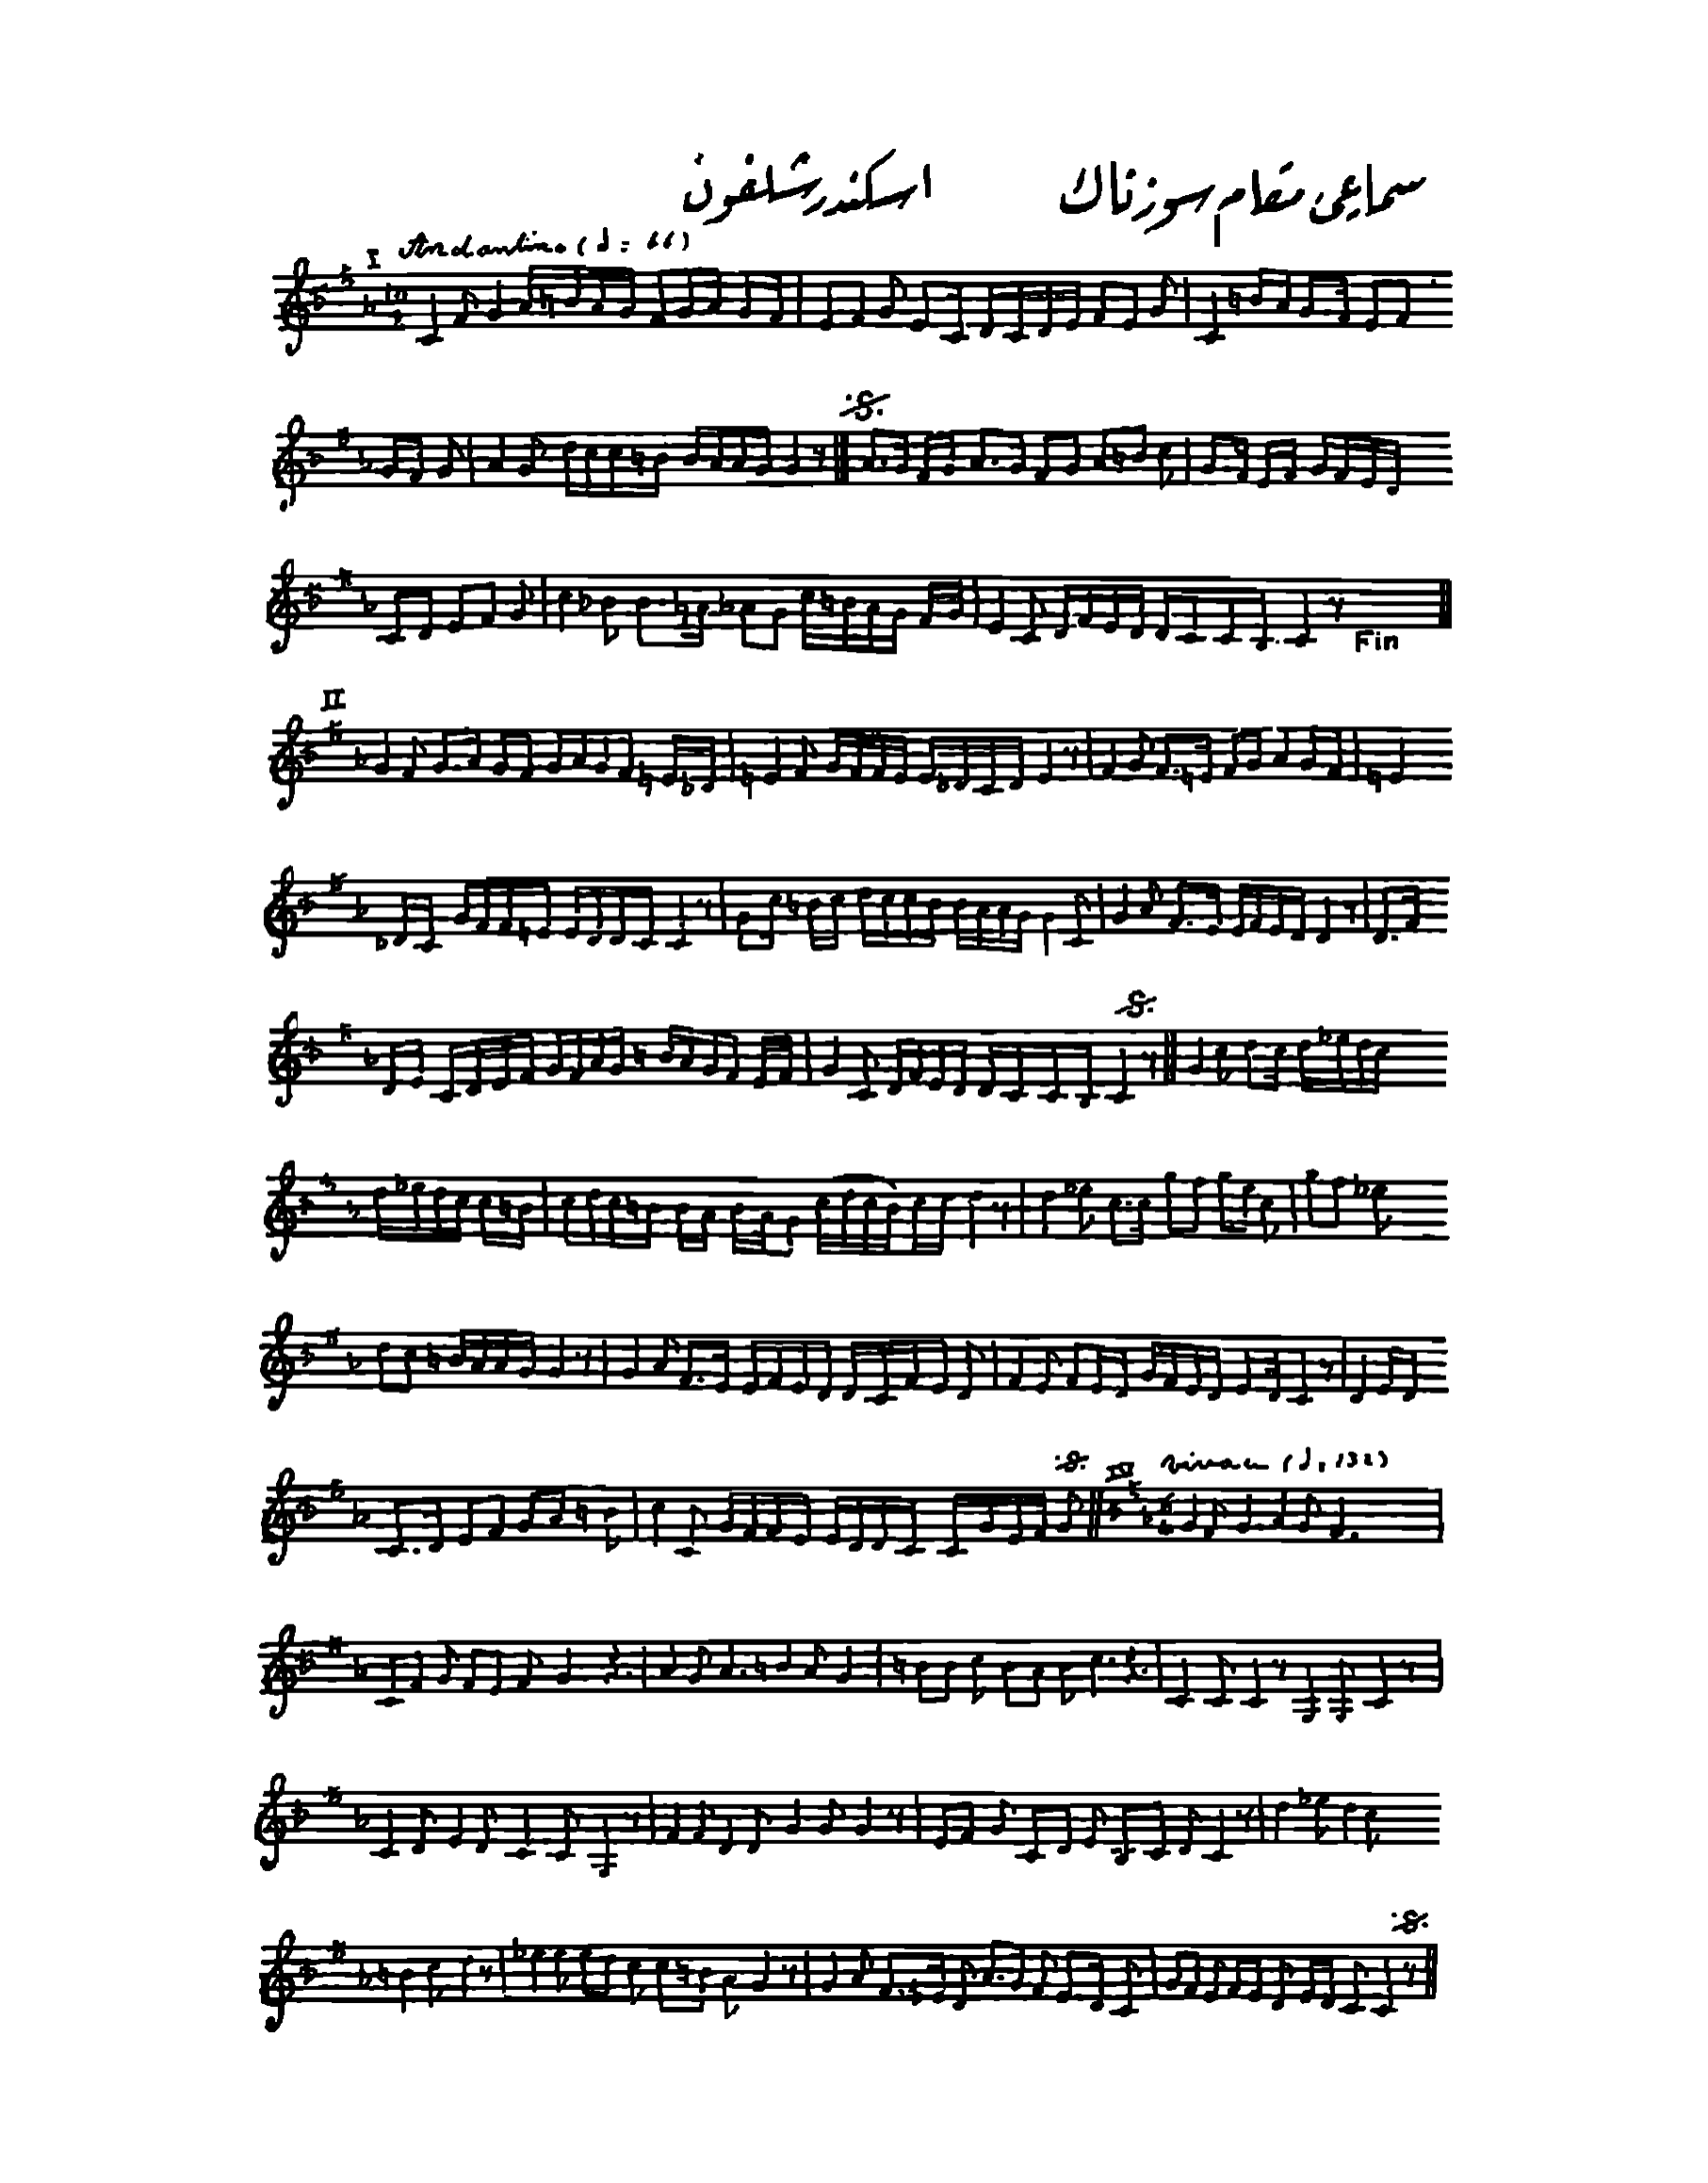 سماعي مقام سوزناك اسكندر شلفون
I Andantino (d = 66)
Fin
II
IV vivace (d. 132)